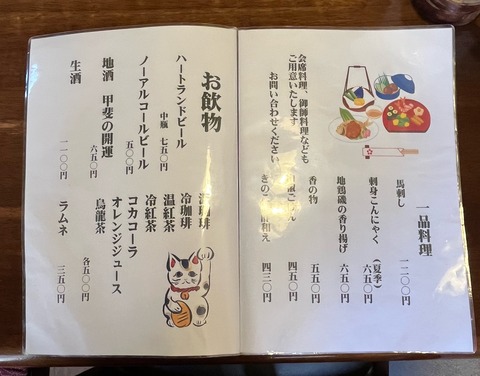 一品料理
馬刺し 一二〇〇円
刺身こんにゃく (夏季) 六五〇円
地鶏磯の香り揚げ 六五〇円
香の物 五五〇円
四五〇円
きの 和え 四三〇円
会席料理、御師料理なども
ご用意いたします
お問い合わせください
お飲物
ハートランドビール
中瓶 七五〇円
ノーアルコールビール
五〇〇円
地酒 甲斐の開運
六五〇円
生酒 一一〇〇円
冷珈琲
温紅茶
冷紅茶
コカコーラ
オレンジジュース
烏龍茶
各五〇〇円
ラムネ 三五〇円